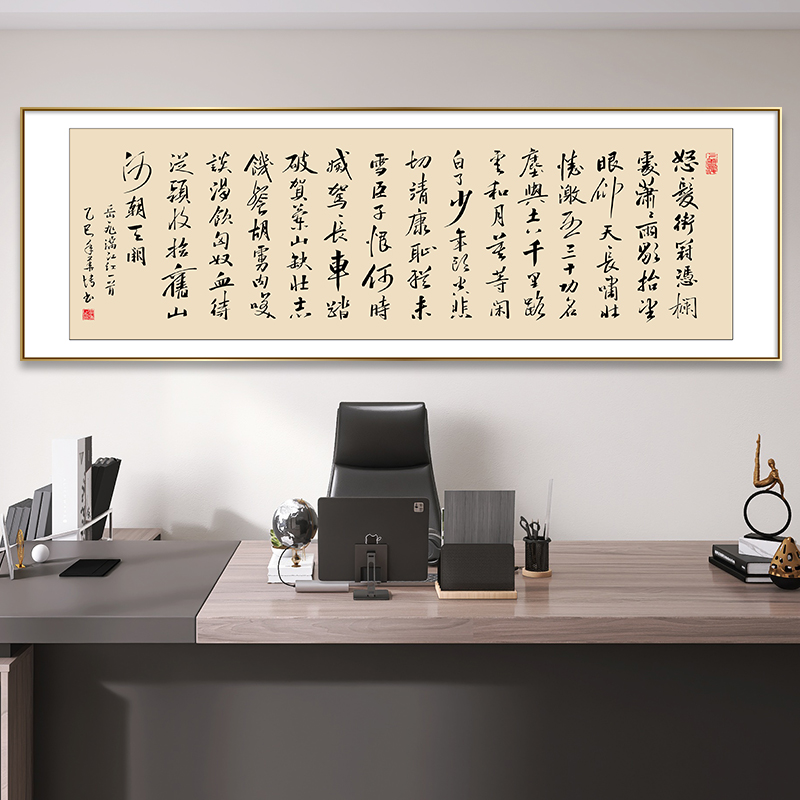 怒髮衝冠憑欄
處蕭〻雨歇抬望
眼仰天長嘯壯
懷激烈三十功名
塵與土八千里路
雲和月莫等閑
白了少年頭空悲
切靖康恥猶未
雪臣子恨何時
滅駕長車踏
破賀蘭山缺壯志
饑餐胡虜肉笑
談渴飲匈奴血待
從頭收拾舊山
河朝天闕
岳飛滿江紅一首
乙巳年書